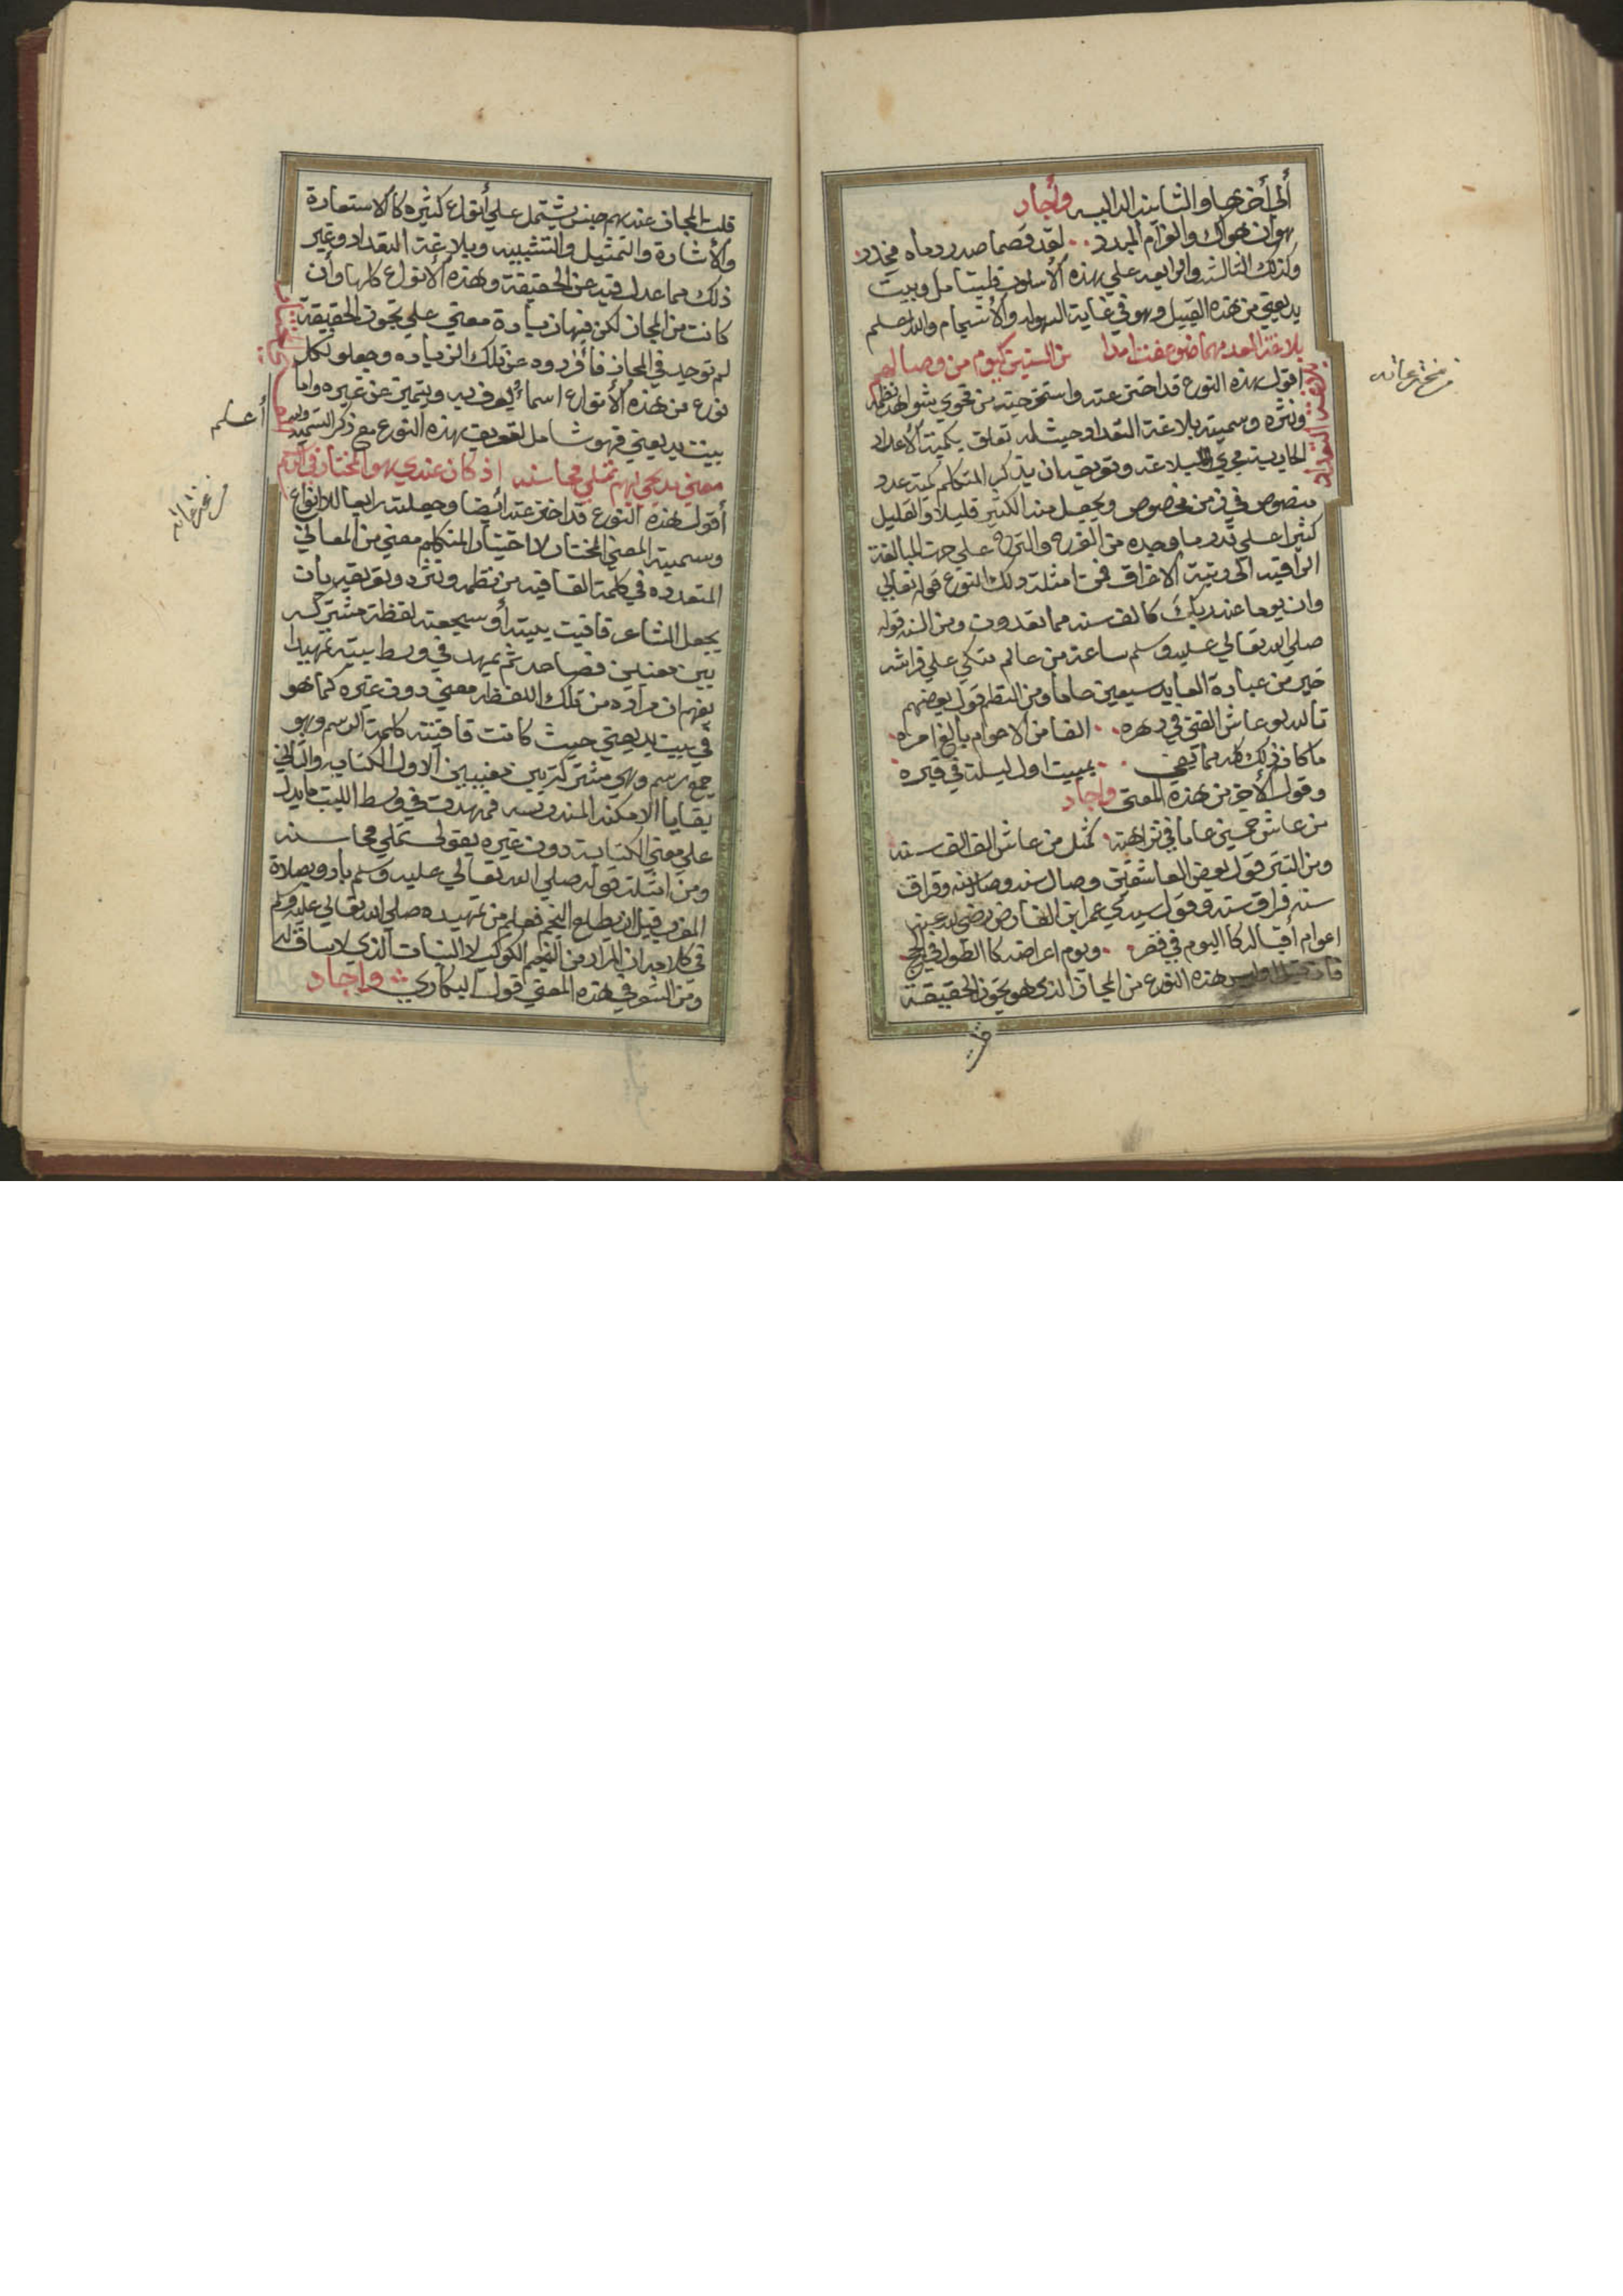 ألي أخرها والثانيه الداليه وأجاد
هوان هواك والغرام المبدد لقد فصما صدر دماه مخدد
وكذلك الثالثه والرابعه علي هذه الأسلوب فليتامل وبيت
بديعيتي من هذه القبيل وهو في غاية السهوله والأنسجام والله اعلم
بلاغة العد مهما ضوعفت امدا من السنين كيوم من وصالهم
اقول هذه النوع قد اخترعته واستخرجته من فحوي شواهد نظمه
ونثره وسميته بلاغة التعداد حيث له تعلق بكمية الأعداد
الجاريه مجري البلاغه وتعريفه ان يذكر المتكلم كمية عدد
منصوص في زمن مخصوص ويجعل منه الكثير قليلا والقليل
كثيرا علي قدر ما وجده من الفرح والترح علي جهة المبالغة
الراقيه الي رتبة الاغراق فمن امثلة ذلك النوع قوله تعالي
وان يوما عند ربك كالف سنه مما تعدون ومن السنه قوله
صلي الله تعالي عليه وسلم ساعة من عالم متكي علي فراشه
خير من عبادة العابد سبعين عاما ومن النظم قول بعضهم
تالله لو عاش الفتي في دهره الفا من الاعوام بالغ امره
ما كان ذلك كله مما يفي بمبيت اول ليلة في قبره
وقول الأخر من هذه المعني واجاد
من عاش خمسين عاما في نزاهته كمثل من عاش الف الف سنه
ومن النثر قول بعض العاشقين وصال سنه وصال سنه وفراق
سنه فراق سنه وقول سيدي عمر ابن الفارض رضي الله عنه
اعوام أقباله كاليوم في قصر ويوم اعراضه كالطول في الحجج
فان قيل اوليس هذه النوع من المجاز الذي هو تجوز الحقيقة
قلت
بلاغة التعداد
من مخترعاته
قلت المجاز عندهم جنس يشتمل علي أنواع كثيره كالاستعارة
والأشارة والتمثيل والتشبيه وبلاغة التعداد وغير
ذلك مما عدل فيه عن الحقيقة وهذه الأنواع كلها وأن
كانت من المجاز لكن فيها زيادة معني علي تجوز الحقيقة
لم توجد في المجاز فأفردوه عن تلك الزياده وجعلو لكل
نوع من هذه الأنواع اسما يعرف به ويتميز عن غيره واما
بيت بديعيتي فهو شامل لتعريف هذه النوع مع ذكر التسميه والله
أعلم
معني بديعي لهم تملي محاسنه اذ كان عندي هو المختار في الرسم
أقول هذه النوع قد اخترعته أيضا وجعلته رابعا للانواع
وسميته المعني المختار لاختيار المتكلم معني من المعاني
المتعدده في كلمة القافيه من نظمه ونثره وتعريفه بأن
يجعل الشاعر قافيت بيته أو سجعته لفظة مشتركه
بين معنيين فصاعد ثم يمهد في وسط بيته تمهيدا
يفهم ان مراده من تلك اللفظه معني دون غيره كما هو
في بيت بديعيتي حيث كانت قافيته كلمة الرسم وهو
جمع رسم وهي مشتركة بين معنيين الاول الكتابه والثاني
بقايا الامكنه المندرسه فمهدت في وسط البيت ما يدل
علي معني الكتابة دون غيره بقولي تملي محاسنه
ومن امثلته قوله صلي الله تعالي عليه وسلم بادرو بصلاة
المغرب قبل ان يطلع النجم فعلم من تمهيده صلي الله تعالي عليه وسلم
في كلامه ان المراد من النجم الكوكب لا النبات الذي لا ساق له
ومن الشعر في هذه المعني قول البكاري واجاد
المعني المختار
من مخترعاته